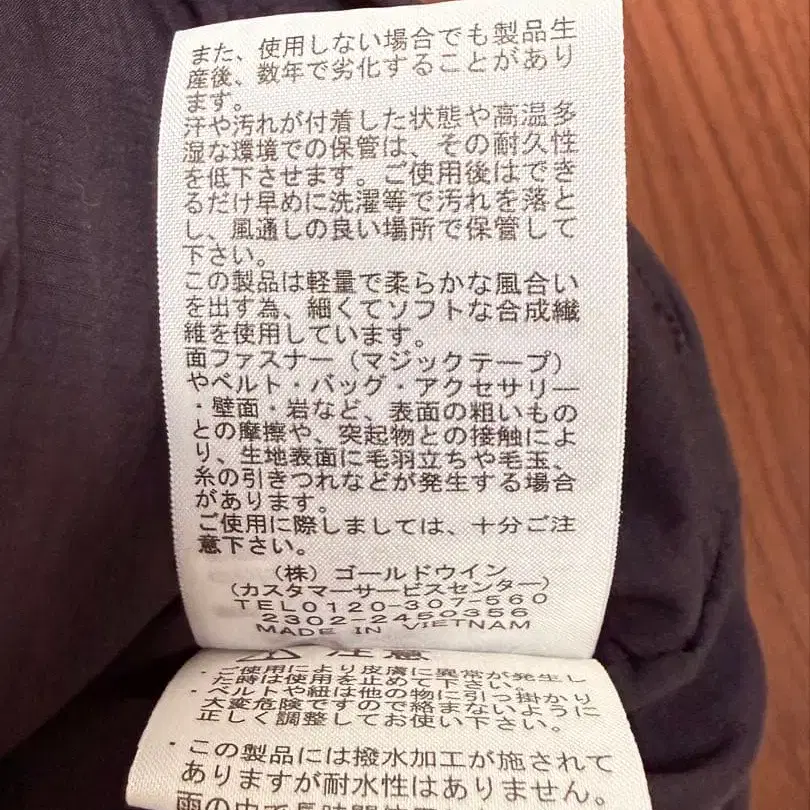 また、使用しない場合でも製品生
産後、数年で劣化することがあり
ます。
汗や汚れが付着した状態や高温多
湿な環境での保管は、その耐久性
を低下させます。ご使用後はでき
るだけ早めに洗濯等で汚れを落と
し、風通しの良い場所で保管して
下さい。
この製品は軽量で柔らかな風合い
を出す為、細くてソフトな合成繊
維を使用しています。
面ファスナー(マジックテープ)
やベルト・バッグ・アクセサリー
・壁面・岩など、表面の粗いもの
との摩擦や、突起物との接触によ
り、生地表面に毛羽立ちや毛玉、
糸の引きつれなどが発生する場合
があります。
ご使用に際しましては、十分ご注
意下さい。
(株)ゴールドウイン
(カスタマーサービスセンター)
TEL0120-307-560
2302-2450356
MADE IN VIETNAM
注意
・ご使用により皮膚に異常が発生し
た時は使用を止めて下さい。
・ベルトや紐は他の物に引っ掛かり
大変危険ですので絡まないように
正しく調整してお使い下さい。
・この製品には撥水加工が施されて
ありますが耐水性はありません。
雨の中で長時間使用